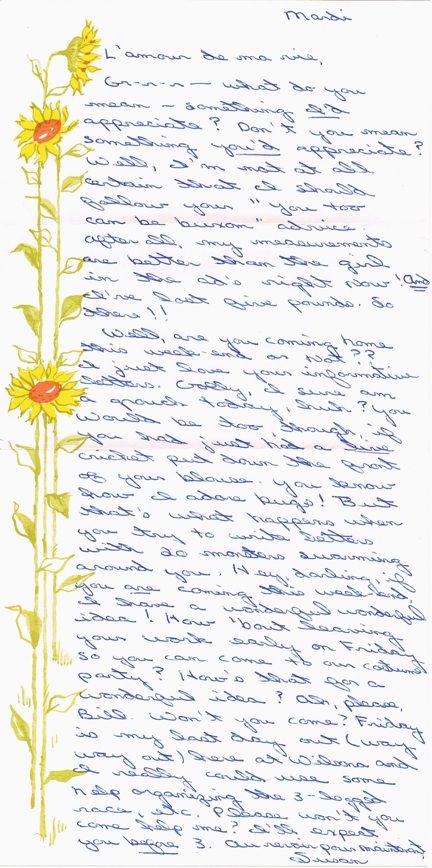 Mardi
L'amour de ma vie,
Gr-r-r — what do you
mean — something I'd
appreciate? Don't you mean
something you'd appreciate?
Well, I'm not at all
certain that I should
follow your "you too
can be buxom" advice.
After all, my measurements
are better than the girl
in the ad's right now! And
I've lost five pounds. So
there!!
Well, are you coming home
this week-end or not??
I just love your informative
letters. Golly, I sure am
a grouch today, huh? You
would be too though, if
you had just had a live
cricket put down the front
of your blouse. You know
how I adore bugs! But
that's what happens when
you try to write letters
with 20 monsters swarming
around you. Hey, darling, if
you are coming this week-end,
I have a wonderful wonderful
idea! How 'bout leaving
your work early on Friday
so you can come to our costume
party? How's that for a
wonderful idea? Ah, please,
Bill. Won't you come? Friday
is my last day out (way
way out) here at Wilsons and
I really could use some
help organizing the 3-legged
race, etc. Please won't you
come help me? I'll expect
you before 3. Au revoir pour maintenant,
Susan